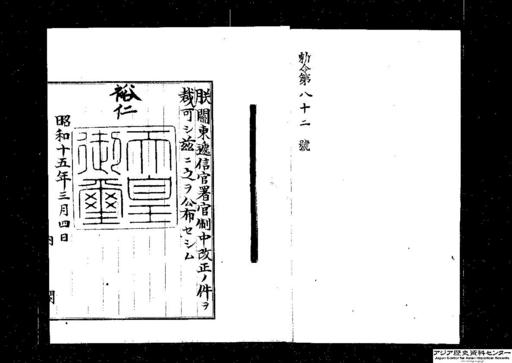 勅令第八十二號
朕關東遞信官署官制中改正ノ件ヲ
裁可シ茲ニ之ヲ公布セシム
裕仁
天皇
御璽
昭和十五年三月四日
内閣
アジア歴史資料センター
Japan Center for Asian Historical Records